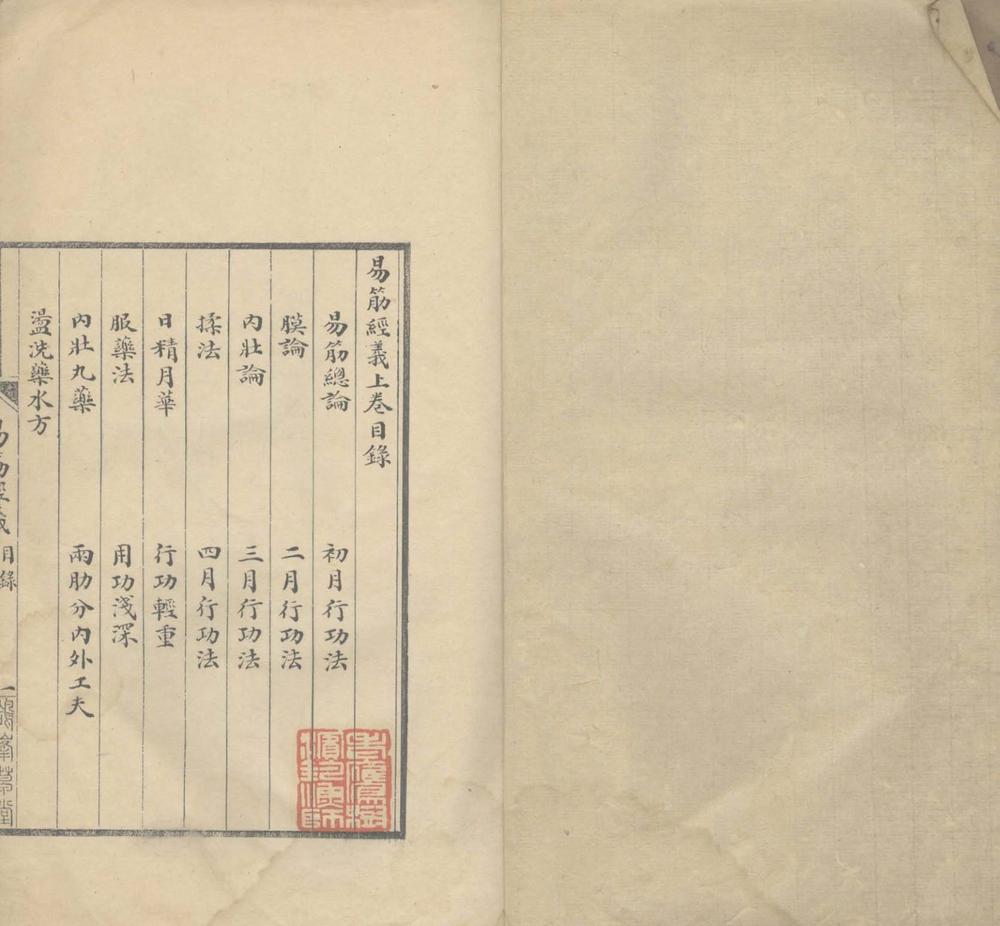 易筋經義上卷目錄
易筋總論　初月行功法
膜論　二月行功法
內壯論　三月行功法
揉法　四月行功法
日精月華　行功輕重
服藥法　用功淺深
內壯丸藥　兩肋分內外工夫
盪洗藥水方
易筋經義　目錄　一